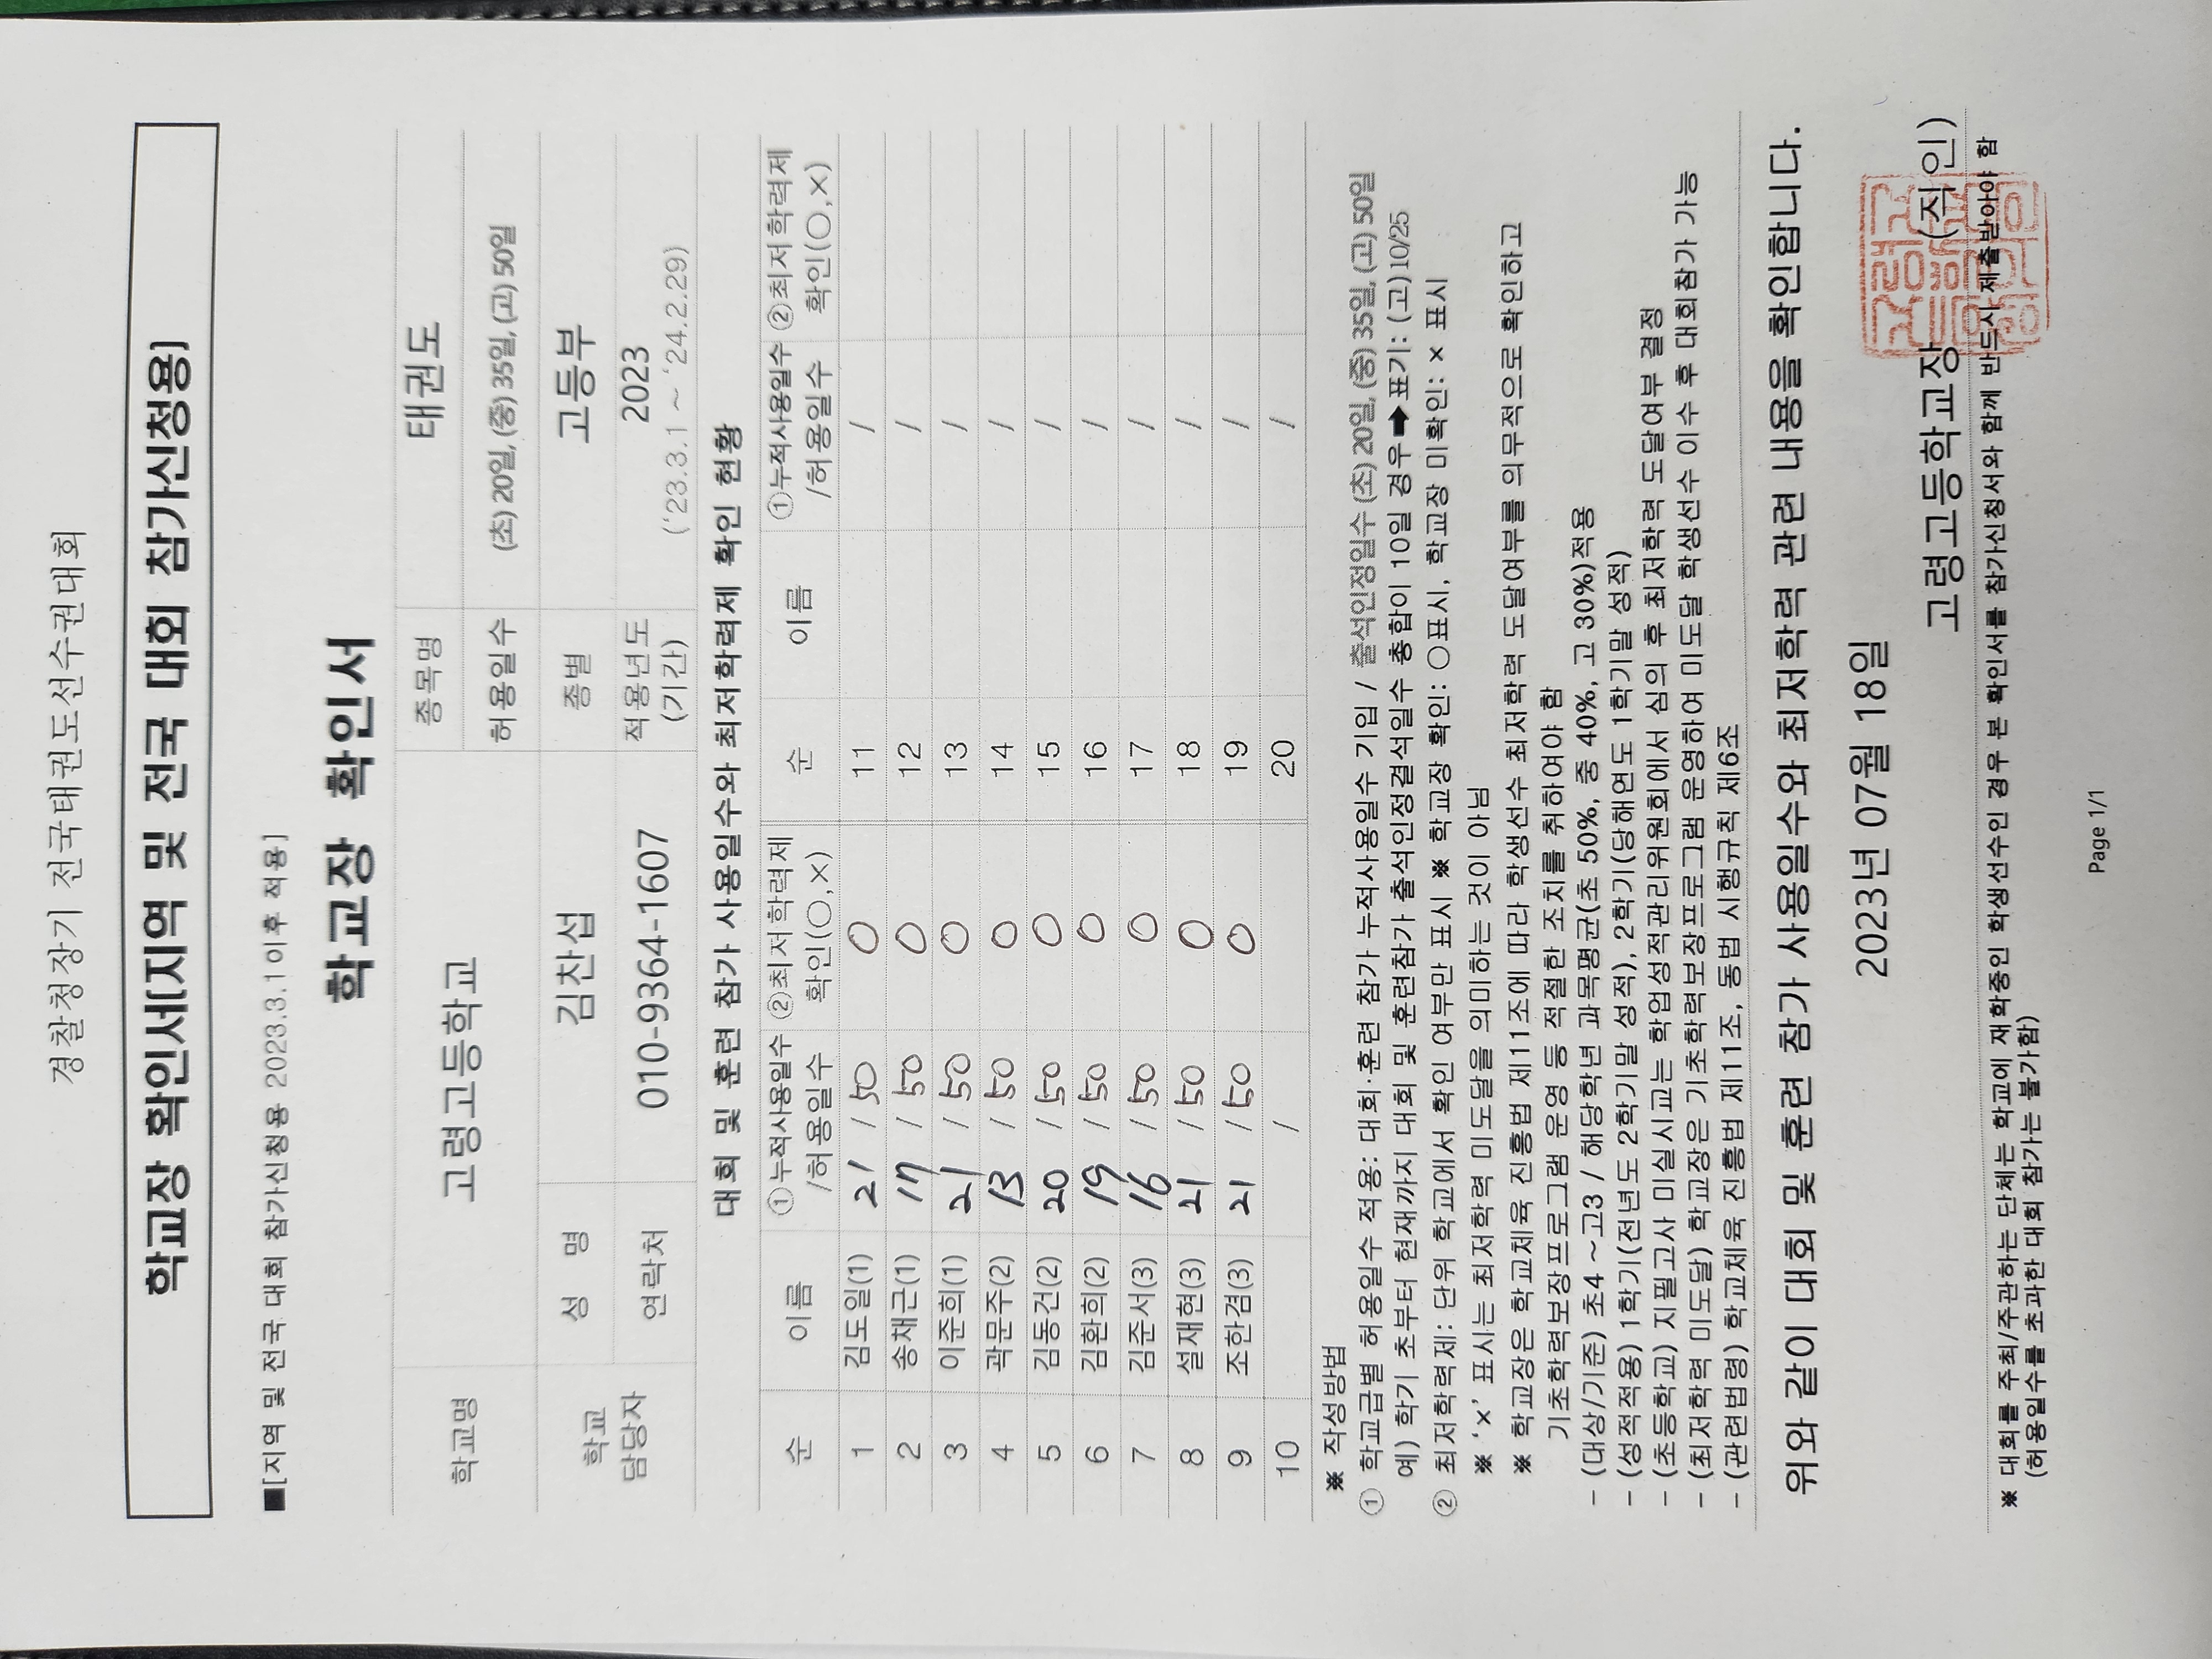 경찰청장기 전국태권도선수권대회
학교장 확인서[지역 및 전국 대회 참가신청용]
■[지역 및 전국 대회 참가신청용 2023.3.1이후 적용]
학교장 확인서
학교명 고령고등학교 종목명 태권도
허용일수 (초) 20일, (중) 35일, (고) 50일
학교 담당자 성 명 김찬섭 종별 고등부
연락처 010-9364-1607 적용년도 (기간) 2023
('23.3.1 ~ '24.2.29)
대회 및 훈련 참가 사용일수와 최저학력제 확인 현황
순 이름 ①누적사용일수 /허용일수 ②최저학력제 확인(○,×) 순 이름 ①누적사용일수 /허용일수 ②최저학력제 확인(○,×)
1 김도일(1) 21 / 50 ○ 11 /
2 송채근(1) 17 / 50 ○ 12 /
3 이준희(1) 21 / 50 ○ 13 /
4 곽문주(2) 13 / 50 ○ 14 /
5 김동건(2) 20 / 50 ○ 15 /
6 김환희(2) 19 / 50 ○ 16 /
7 김준서(3) 16 / 50 ○ 17 /
8 설재현(3) 21 / 50 ○ 18 /
9 조한겸(3) 21 / 50 ○ 19 /
10 / 20 /
※ 작성방법
① 학교급별 허용일수 적용: 대회·훈련 참가 누적사용일수 기입 / 출석인정일수 (초) 20일, (중) 35일, (고) 50일
예) 학기 초부터 현재까지 대회 및 훈련참가 출석인정결석일수 총합이 10일 경우➡표기: (고) 10/25
② 최저학력제: 단위 학교에서 확인 여부만 표시 ※ 학교장 확인: ○표시, 학교장 미확인: × 표시
※ '×' 표시는 최저학력 미도달을 의미하는 것이 아님
※ 학교장은 학교체육 진흥법 제11조에 따라 학생선수 최저학력 도달여부를 의무적으로 확인하고
기초학력보장프로그램 운영 등 적절한 조치를 취하여야 함
- (대상/기준) 초4 ~고3 / 해당학년 과목평균(초 50%, 중 40%, 고 30%)적용
- (성적적용) 1학기(전년도 2학기말 성적), 2학기(당해연도 1학기말 성적)
- (초등학교) 지필고사 미실시교는 학업성적관리위원회에서 심의 후 최저학력 도달여부 결정
- (최저학력 미도달) 학교장은 기초학력보장프로그램 운영하여 미도달 학생선수 이수 후 대회참가 가능
- (관련법령) 학교체육 진흥법 제11조, 동법 시행규칙 제6조
위와 같이 대회 및 훈련 참가 사용일수와 최저학력 관련 내용을 확인합니다.
2023년 07월 18일
고령고등학교장 (직인)
※ 대회를 주최/주관하는 단체는 학교에 재학중인 학생선수인 경우 본 확인서를 참가신청서와 함께 반드시 제출받아야 함
(허용일수를 초과한 대회 참가는 불가함)
Page 1/1